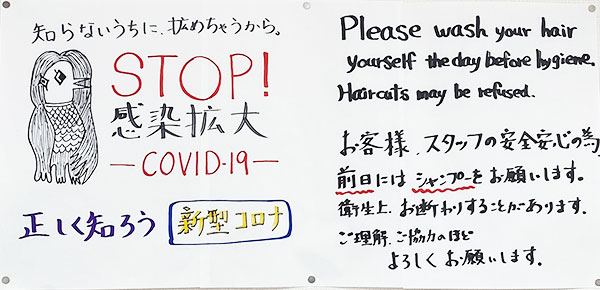 知らないうちに、拡めちゃうから。
STOP!
感染拡大
—COVID-19—
正しく知ろう 新型コロナ
Please wash your hair
yourself the day before hygiene.
Haircuts may be refused.
お客様、スタッフの安全安心の為
前日には シャンプーをお願いします。
衛生上、お断りすることがあります。
ご理解、ご協力のほど
よろしくお願いします。